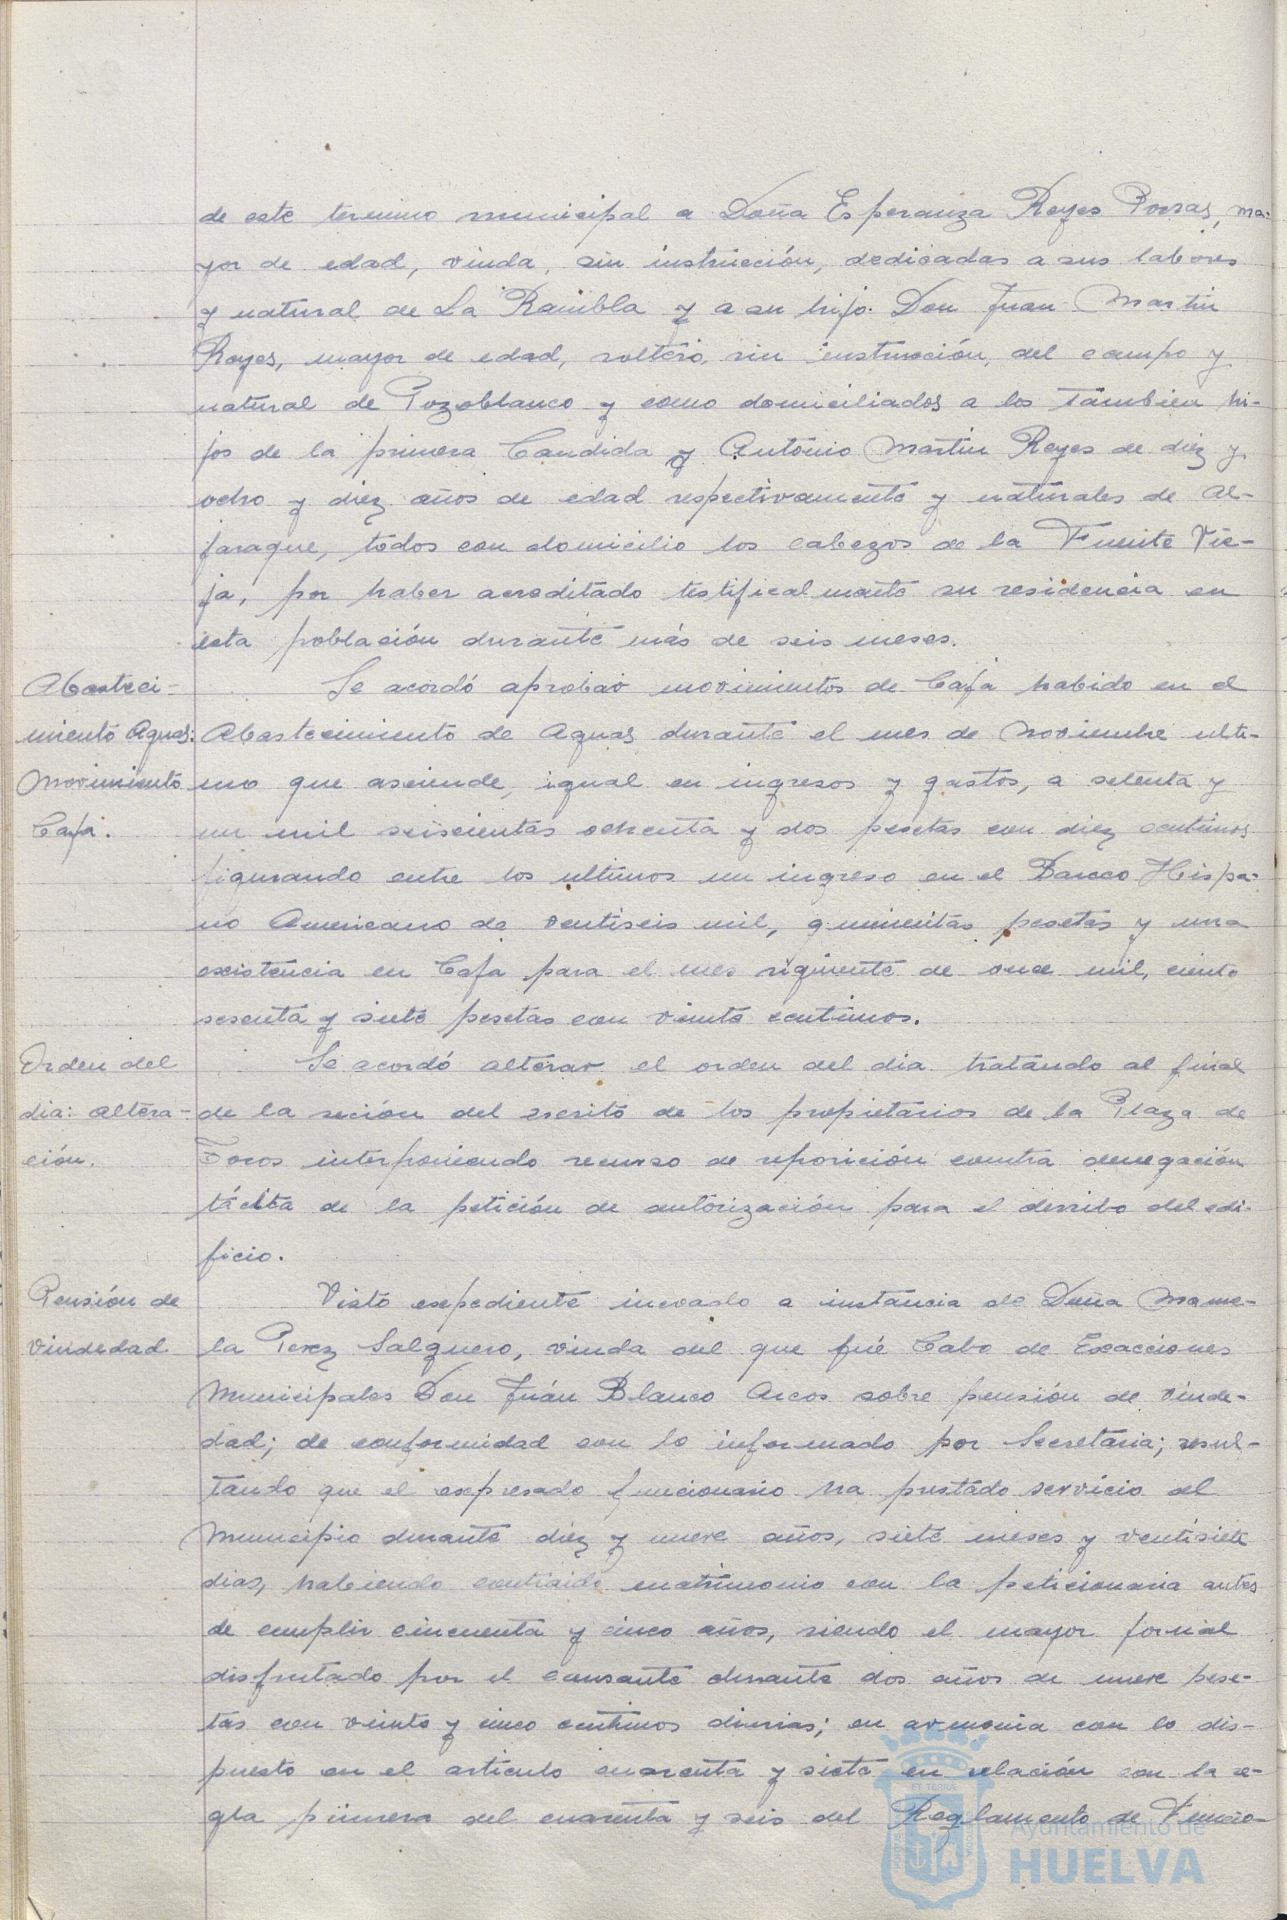 de este termino municipal a Doña Esperanza Reyes Porras, ma-
yor de edad, viuda, sin instrucción, dedicadas a sus labores
y natural de La Rambla y a su hijo Don Juan Martin
Reyes, mayor de edad, soltero, sin instrucción, del campo y
natural de Pozoblanco y como domiciliados a los tambien hi-
jos de la primera Candida y Antonio Martin Reyes de diez y
ocho y diez años de edad respectivamente y naturales de Al-
jaraque, todos con domicilio los cabezos de la Fuente Vie-
ja, por haber acreditado testificalmente su residencia en
esta población durante más de seis meses.
Abasteci-
miento Aguas:
Movimiento
Caja.
Se acordó aprobar movimientos de Caja habido en el
Abastecimiento de Aguas durante el mes de Noviembre ulti-
mo que asciende, igual en ingresos y gastos, a setenta y
un mil seiscientas ochenta y dos pesetas con diez centimos
figurando entre los ultimos un ingreso en el Banco Hispa-
no Americano de ventiseis mil, quinientas pesetas y una
existencia en Caja para el mes siguiente de once mil, ciento
sesenta y siete pesetas con veinte centimos.
Orden del
dia: altera-
ción.
Se acordó alterar el orden del dia tratando al final
de la seción del escrito de los propietarios de la Plaza de
Toros interponiendo recurso de reposición contra denegación
tácita de la petición de autorización para el derribo del edi-
ficio.
Pensión de
viudedad
Visto expediente incoado a instancia de Doña Manue-
la Perez Salguero, viuda del que fué Cabo de Exacciones
Municipales Don Juán Blanco Arcos sobre pensión de viude-
dad; de conformidad con lo informado por Secretaria; resul-
tando que el expresado funcionario ha prestado servicio al
Municipio durante diez y nueve años, siete meses y ventisiete
dias, habiendo contraido matrimonio con la peticionaria antes
de cumplir cincuenta y cinco años, siendo el mayor jornal
disfrutado por el causante durante dos años de nueve pese-
tas con veinte y cinco centimos diarias; en armonia con lo dis-
puesto en el articulo cuarenta y siete en relación con la re-
gla primera del cuarenta y seis del Reglamento de Funcio-
Ayuntamiento de
HUELVA